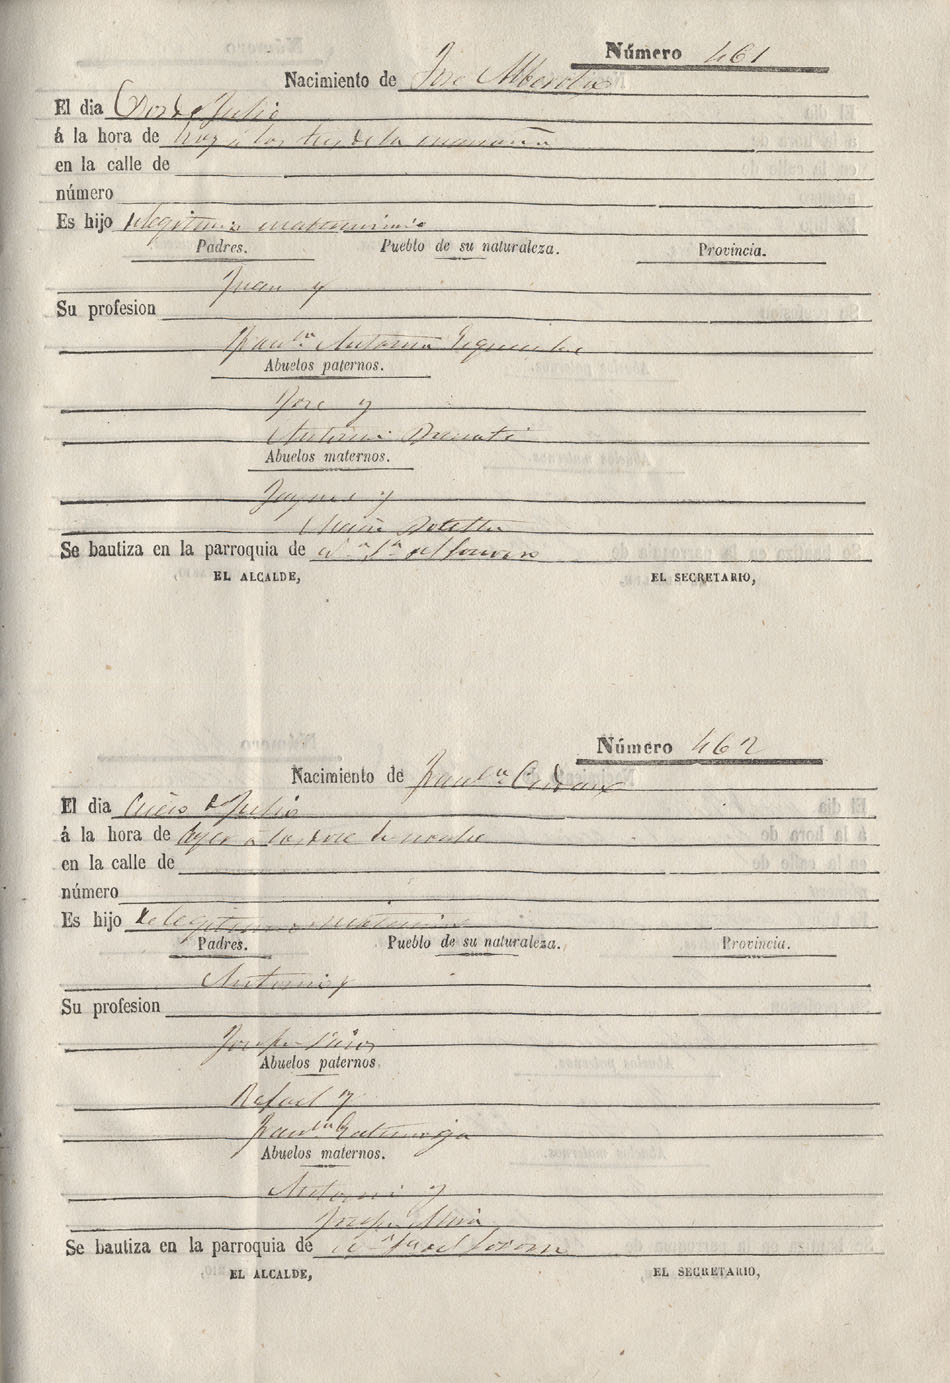 Número 461
Nacimiento de José Alberola
El dia Dos de Julio
á la hora de hoy a las tres de la mañana
en la calle de
número
Es hijo de legitimo matrimonio
Padres. Pueblo de su naturaleza. Provincia.
Juan y
Su profesion
Franca Antonia
Abuelos paternos.
José y
Antonia
Abuelos maternos.
Jayme y
Maria
Se bautiza en la parroquia de Na Sa del Socorro
EL ALCALDE, EL SECRETARIO,
Número 462
Nacimiento de Franca
El dia de Julio
á la hora de ayer a las doce de noche
en la calle de
número
Es hijo de legitimo matrimonio
Padres. Pueblo de su naturaleza. Provincia.
Antonio y
Su profesion
Josefa
Abuelos paternos.
Rafael y
Franca
Abuelos maternos.
Antonio y
Josefa
Se bautiza en la parroquia de Na Sa del Socorro
EL ALCALDE, EL SECRETARIO,